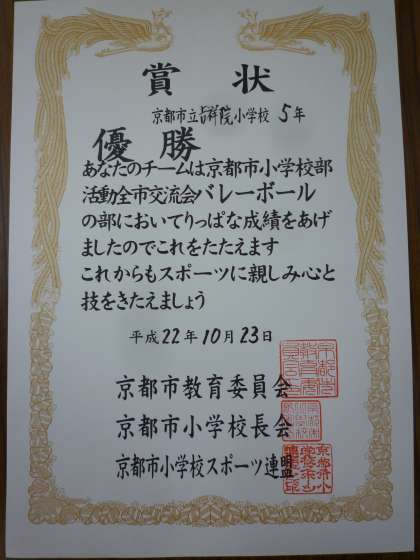 賞状
京都市立吉祥院小学校 5年
優勝
あなたのチームは京都市小学校部
活動全市交流会バレーボール
の部においてりっぱな成績をあげ
ましたのでこれをたたえます
これからもスポーツに親しみ心と
技をきたえましょう
平成22年10月23日
京都市教育委員会
京都市小学校長会
京都市小学校スポーツ連盟